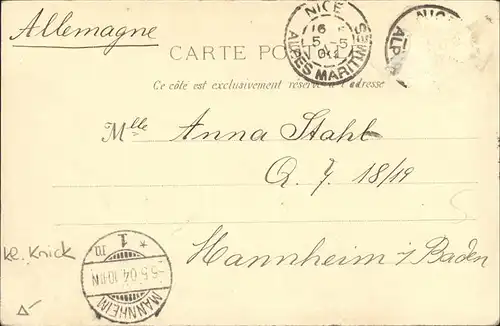 Allemagne
NICE
16
5-5
04
ALPES MARITIMES
NICE
ALP
CARTE PO
Ce côté est exclusivement réservé à l'adresse
Mlle Anna Stahl
Q. 7. 18/19
Mannheim i/Baden
kl. Knick
MANNHEIM
5.5.04.10-11N
1